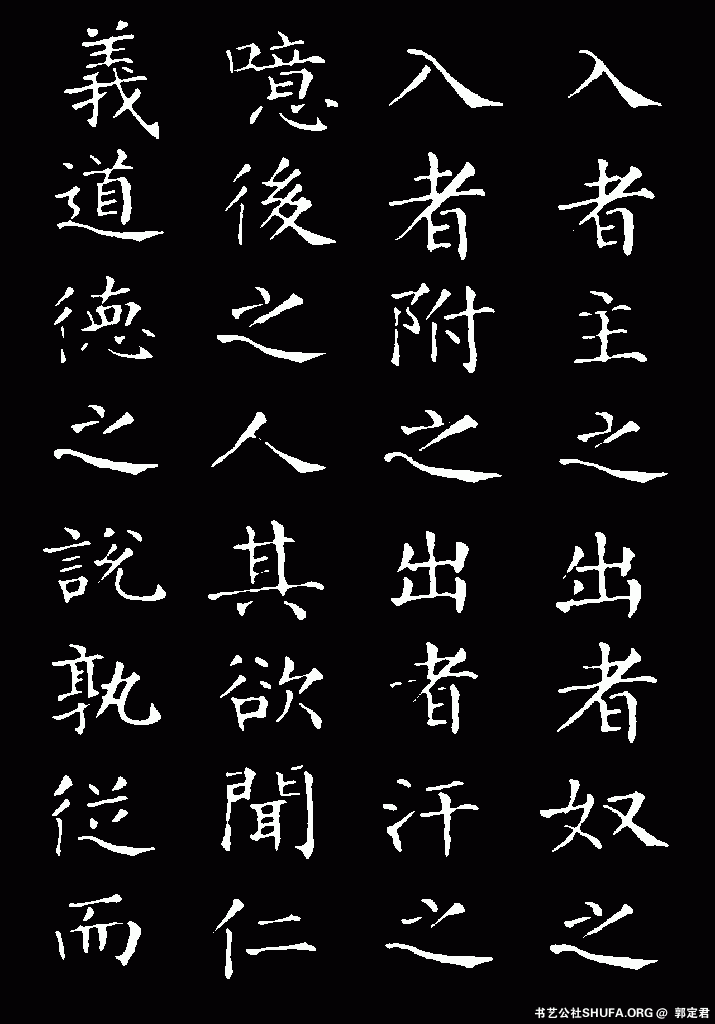 入者主之出者奴之
入者附之出者汙之
噫後之人其欲聞仁
義道德之說孰從而
书艺公社SHUFA.ORG @ 郭定君